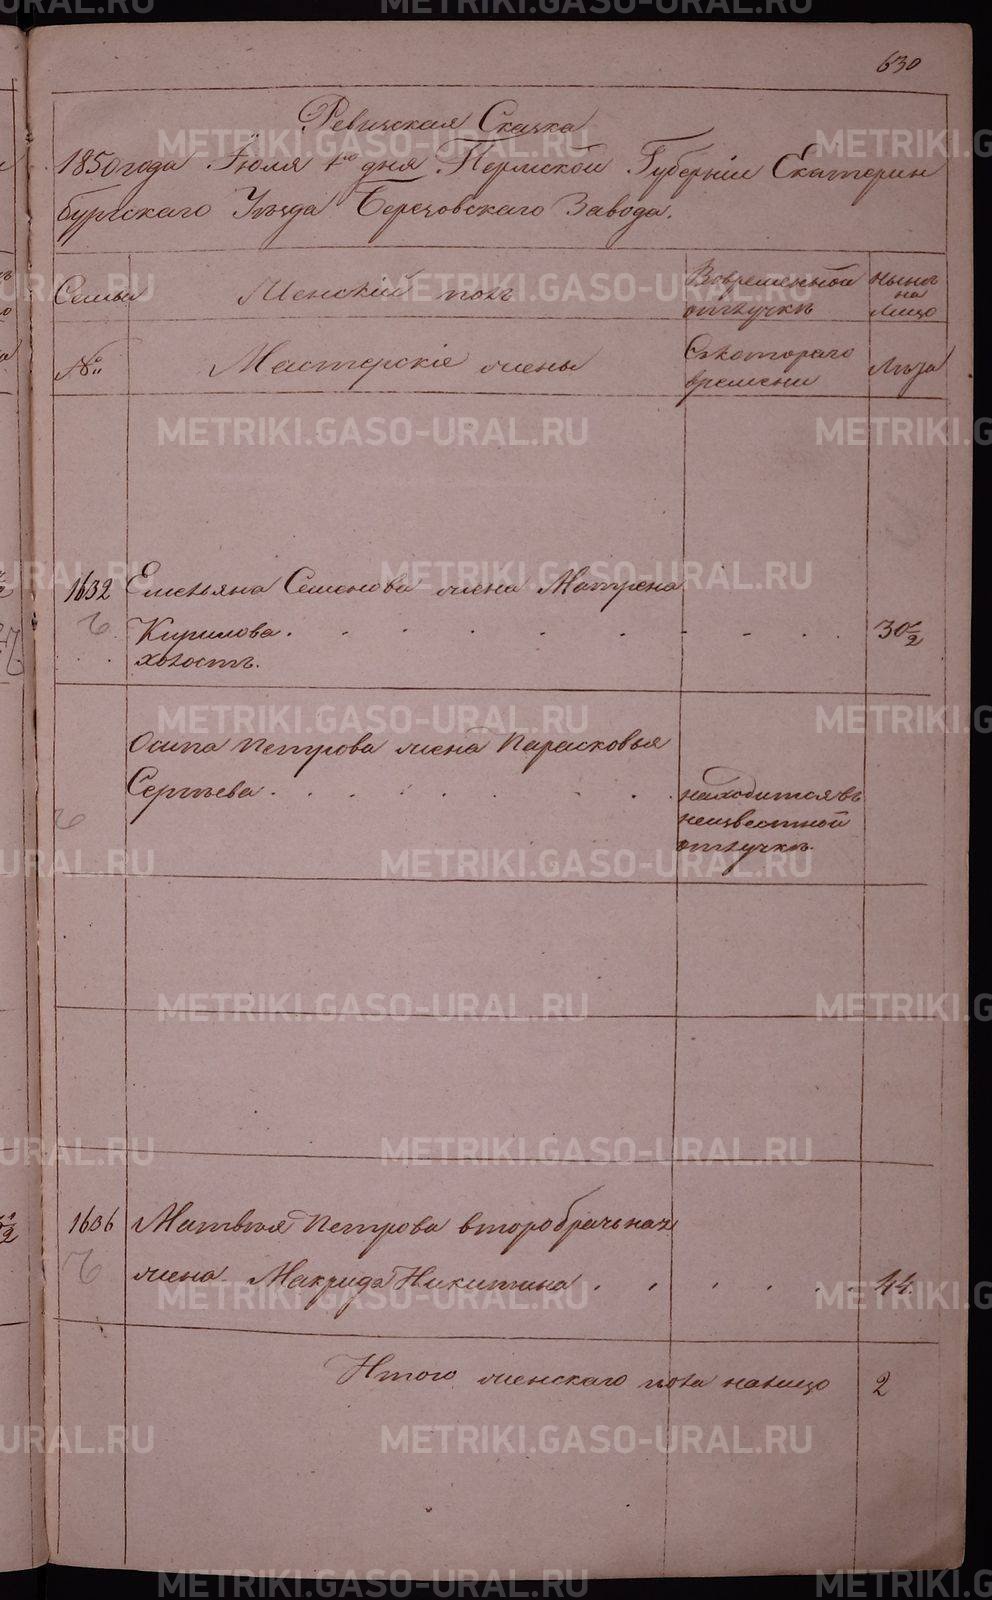 630
Ревизская Сказка
1850 года Іюля 1го дня Пермской Губерніи Екатерин
бургскаго Уѣзда Березовскаго Завода.
Семьи
Женскій полъ
Вовременной
отлучкѣ
Нынѣ
на
лицо
№
Мастерскіе жены
Съкотораго
времени
Лѣта
1632 Емельяна Семенова жена Матрена
Кирилова. 30½
холостъ.
Осипа Петрова жена Парасковья
Сергѣева.
находится въ
неизвестной
отлучкѣ.
1636 Матвѣя Петрова второбрачьная
жена Макрида Никитина. 44.
Итого женскаго пола налицо 2
METRIKI.GASO-URAL.RU